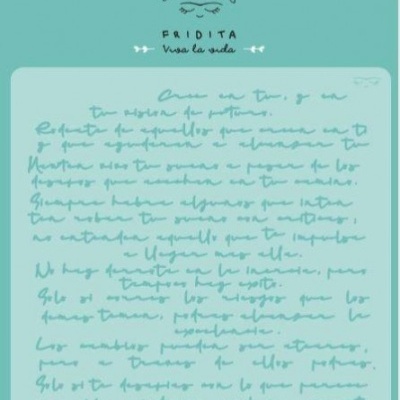 FRIDITA
Viva la vida
Cree en tu, y en
tu vision de futuro.
Rodeate de aquellos que creen en ti
y que ayudaran a alcanzar tu
Manten vivo tu sueno a pesar de los
desafios que acechan en tu camino.
Siempre habra algunos que inten
ten robar tu sueno con criticas,
no entenden aquello que te impulse
a llegar mas alla.
No hay derrota en la inercia, pero
tampoco hay exito.
Solo si corres los riesgos que los
demas temen, podras alcanzar la
excelencia.
Los cambios pueden ser atroces,
pero a traves de ellos podras,
Solo si te desafias con lo que parece